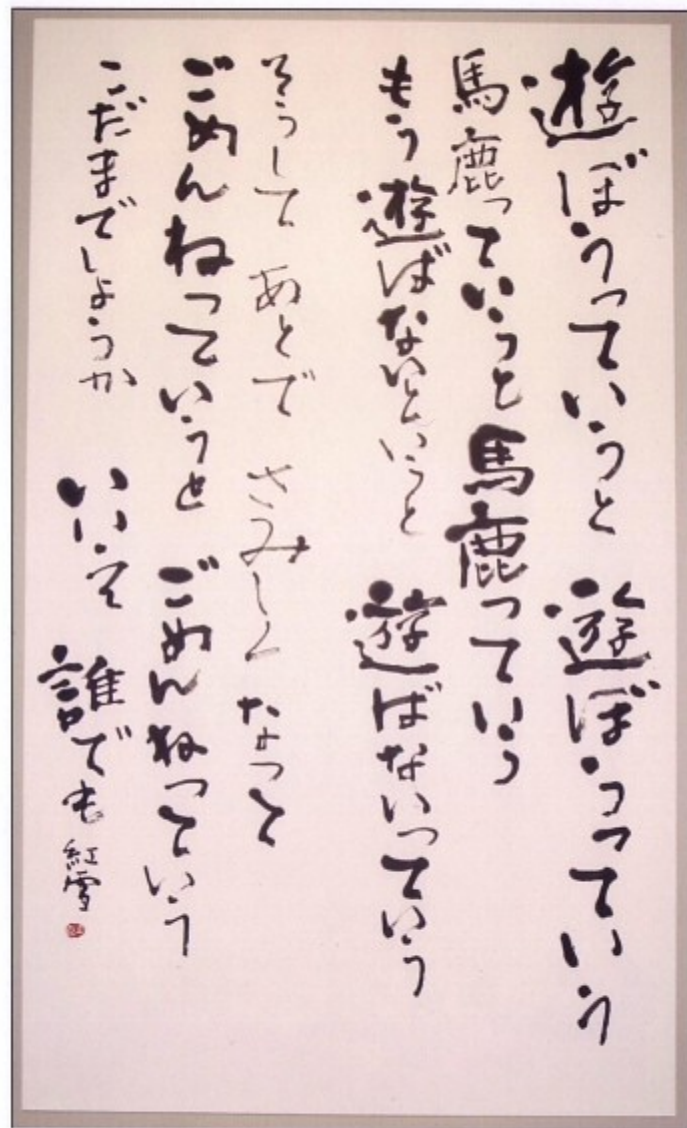 遊ぼうっていうと 遊ぼうっていう
馬鹿っていうと 馬鹿っていう
もう遊ばないというと 遊ばないっていう
そうして あとで さみしく なって
ごめんねっていうと ごめんねっていう
こだまでしょうか いいえ 誰でも 紅雪